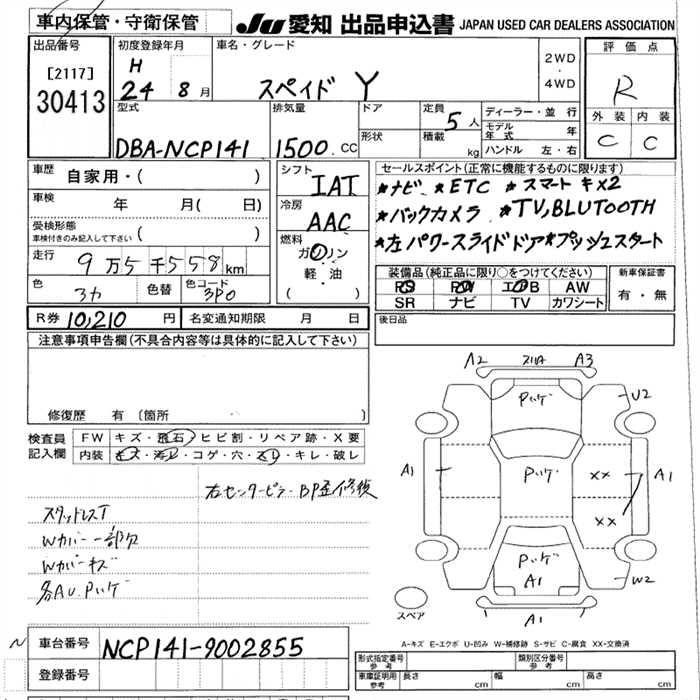 車内保管・守衛保管
JU 愛知 出品申込書 JAPAN USED CAR DEALERS ASSOCIATION
出品番号
[2117]
30413
初度登録年月
H
24 8月
車名・グレード
スペイド Y
2WD
・
4WD
評価点
R
外装 内装
C C
型式
DBA-NCP141
排気量
1500 CC
ドア
形状
定員
5人
積載
kg
ディーラー・並行
モデル年式 年
ハンドル 左・右
車歴 自家用・( )
車検 年 月( 日)
受検形態
車検付きのみ記入して下さい ( )
走行 9万5千558km
色 色替 色コード
3P0
シフト
IAT
冷房
AAC
燃料
ガソリン
・
軽・油
( )
セールスポイント(正常に機能するものに限ります)
*ナビ *ETC *スマートキ×2
*バックカメラ *TV,BLUTOOTH
*左パワースライドドア*プッシュスタート
装備品(純正品に限り○をつけてください)
PS PW エアB AW
SR ナビ TV カワシート
新車保証書
有・無
R券 10,210円
名変通知期限 月 日
後日品
注意事項申告欄(不具合内容等は具体的に記入して下さい)
修復歴 有(箇所
検査員
記入欄
FW キズ・飛石・ヒビ割・リペア跡・X要
内装 キズ・汚レ・コゲ・穴・スレ・キレ・破レ
右センターピラーBP歪修復
スタッドレスT
Wカバー一部欠
Wカバーキズ
各AU.Pハゲ
A2 A3
Pハゲ
U2
A1
Pハゲ
XX
A1
XX
Pハゲ
A1
W2
スペア
A1
A-キズ E-エクボ U-凹み W-補修跡 S-サビ C-腐食 XX-交換済
N
車台番号 NCP141-9002855
登録番号
形式指定番号
参考
類別区分番号
参考
車庫証明用
参考
長さ cm 幅 cm 高さ cm